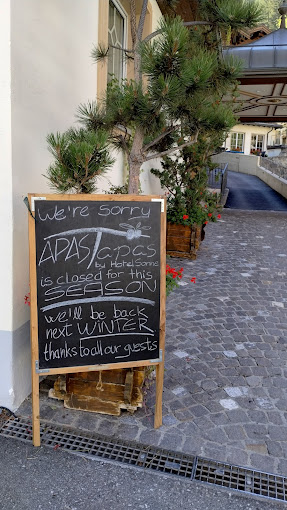 We're sorry
APASTapas
by Hotel Sonne
is closed for this
SEASON
we'll be back
next WINTER
thanks to all our guests